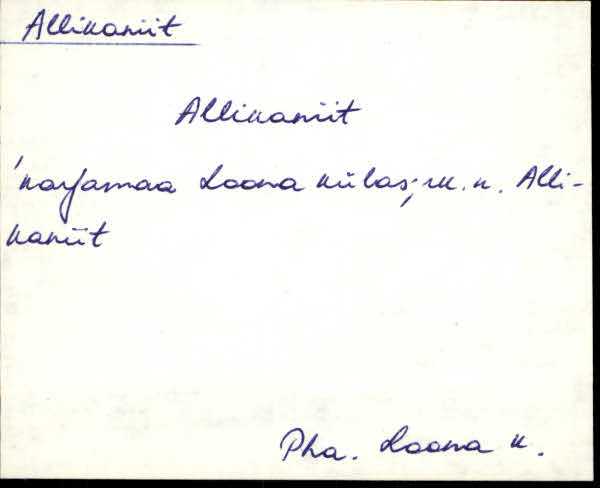 Allikaniit
Allikaniit
'karjamaa Loona külas; rk. n. Alli-
kaniit
Pha. Loona k.